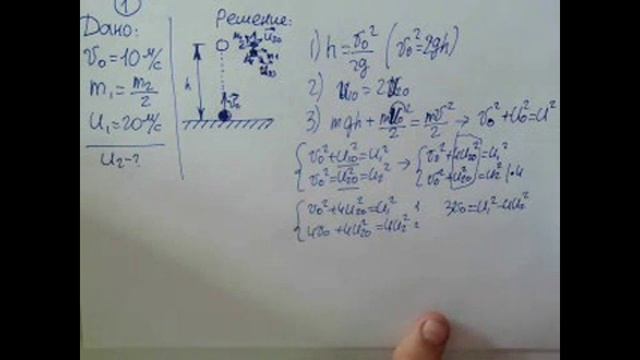 1
Дано:
v₀ = 10 м/с
m₁ = m₂/2
u₁ = 20 м/с
u₂ - ?
Решение:
h
v₀
1) h = v₀²/2g (v₀² = 2gh)
2) u₁₀ = 2u₂₀
3) mgh + mu₀²/2 = mv²/2 → v₀² + u₀² = u²
{ v₀² + u₁₀² = u₁² → { v₀² + 4u₂₀² = u₁²
v₀² = u₂₀² = u₂² v₀² + u₂₀² = u₂² | · 4
{ v₀² + 4u₂₀² = u₁² 3v₀ = u₁² - 4u₂²
4v₀ + 4u₂₀² = 4u₂²